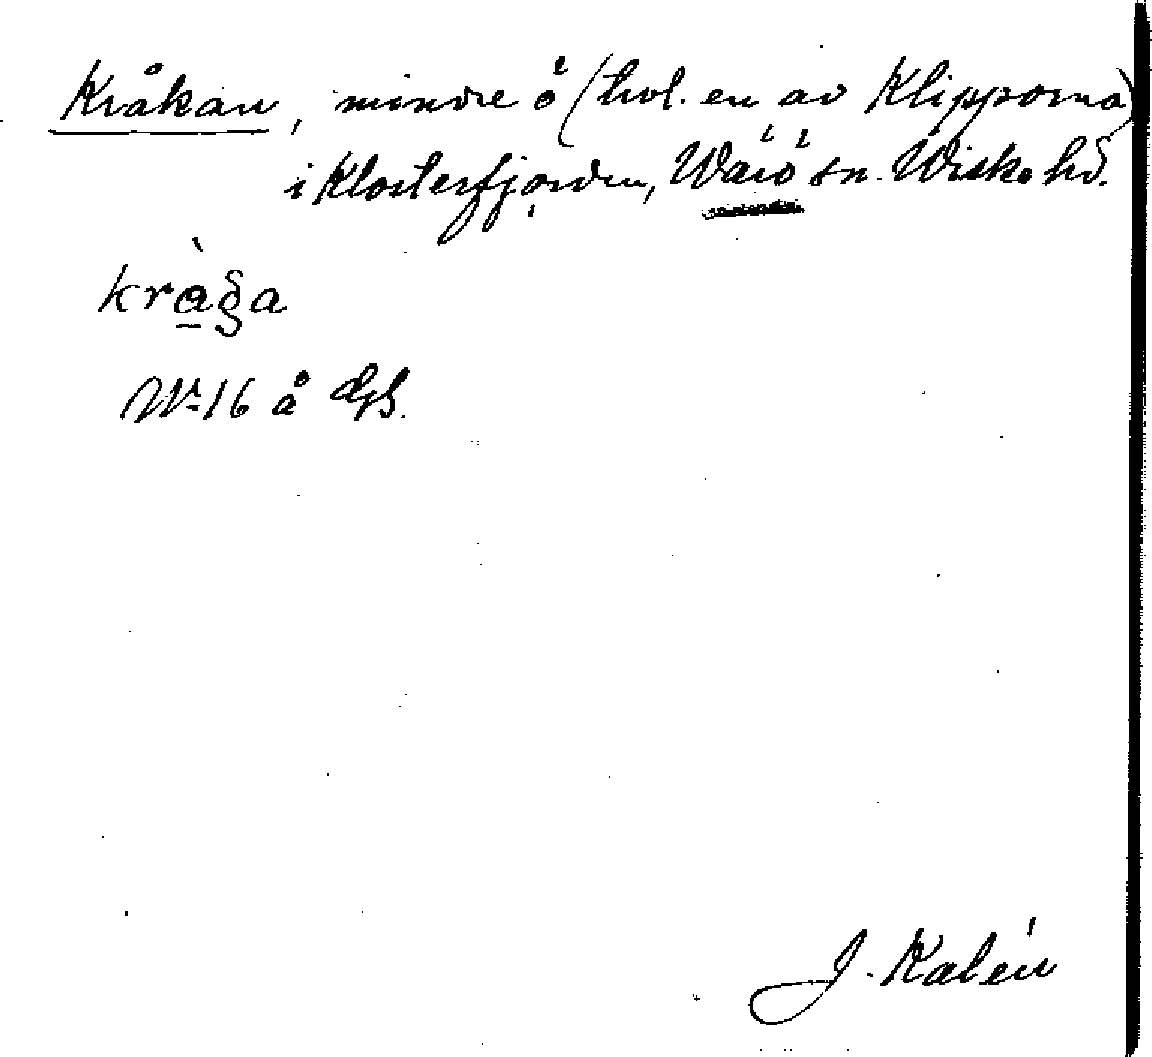 Kråkan, mindre ö (trol. en av Klipporna)
i Klosterfjorden, Wärö sn. Wiske hd.
kràga
No 16 å GS.
J. Kalén